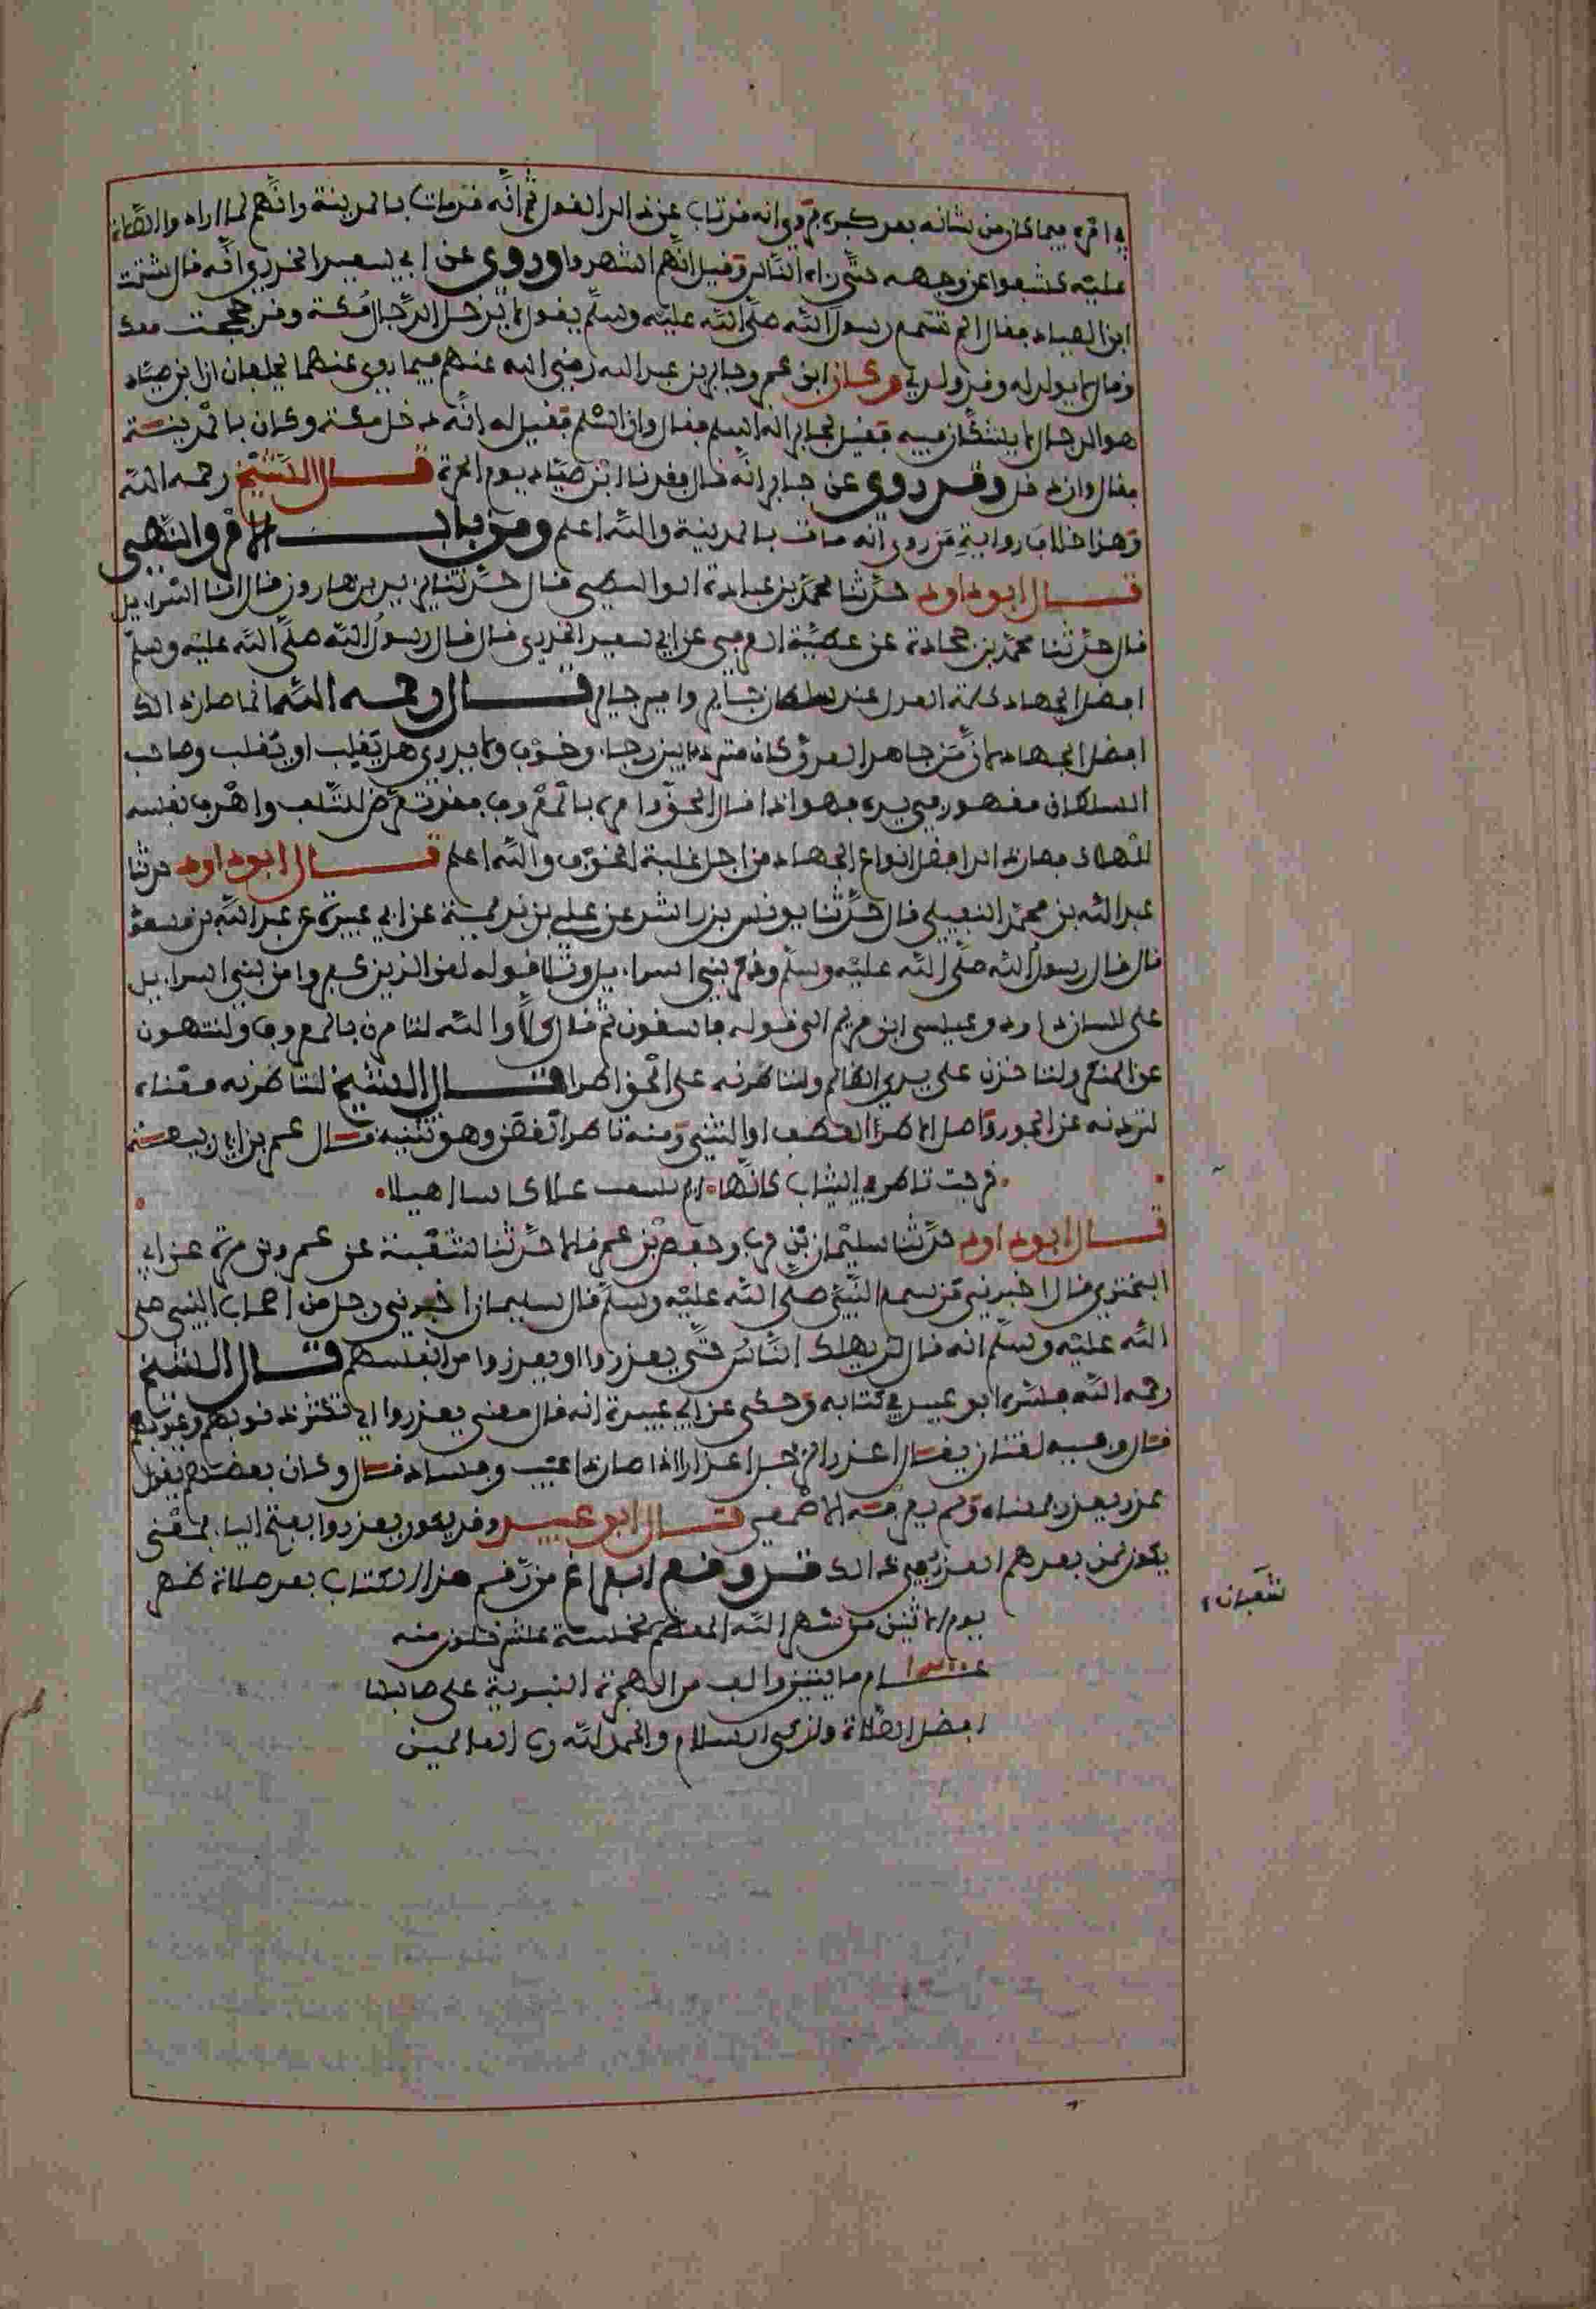 في امره فيما كان من شانه بعد كبره فروي انه قد تاب عن ذالك القول ثم انه قد مات بالمدينة وانهم لما ارادوا الصلاة
عليه كشفوا عن وجهه حتى راه الناس وقيل لهم اشهدوا وروي عن ابي سعيد الخدري انه قال شتمت
ابن الصياد فقال الم تسمع رسول الله صلى الله عليه وسلم يقول لا يدخل الدجال مكة وقد حججت معك
وقال لا يولد له وقد ولد لي وكان ابن عمر وجابر بن عبد الله رضي الله عنهم فيما روي عنهما يحلفان ان ابن صياد
هو الدجال لا يشكان فيه فقيل لجابر انه اسلم فقال وان اسلم فقيل له انه دخل مكة وكان بالمدينة
فقال وان دخل وقد روي عن جابر انه قال فقدنا ابن صياد يوم الحرة قال الشيخ رحمه الله
وهذا خلاف رواية من روى انه مات بالمدينة والله اعلم ومن باب الامر والنهي
قال ابو داود حدثنا محمد بن عبادة الواسطي قال حدثنا يزيد بن هارون قال انا اسراءيل
قال حدثنا محمد بن جحادة عن عطية العوفي عن ابي سعيد الخدري قال قال رسول الله صلى الله عليه وسلم
افضل الجهاد كلمة العدل عند سلطان جاير وامير جاير قال رحمه الله انما صار ذالك
افضل الجهاد لان من جاهد العدو كان مترددا بين رجاء وخوف ولا يدري هل يغلب او يغلب وصاحب
السلطان مقهور في يده فهو اذا قال الحق وامره بالمعروف فقد تعرض للتلف واهدف نفسه
للهلاك فصار ذالك افضل انواع الجهاد من اجل غلبة الخوف والله اعلم قال ابو داود حدثنا
عبد الله بن محمد النفيلي قال حدثنا يونس بن راشد عن علي بن بذيمة عن ابي عبيدة عن عبد الله بن مسعود
قال قال رسول الله صلى الله عليه وسلم وذكر بني اسراءيل وتلا قوله لعن الذين كفروا من بني اسراءيل
على لسان داود وعيسى ابن مريم الى قوله فاسقون ثم قال كلا والله لتامرن بالمعروف ولتنهون
عن المنكر ولتاخذن على يدي الظالم ولتاطرنه على الحق اطرا قال الشيخ لتاطرنه معناه
لتردنه عن الجور واصل الاطر العطف او التثني ومنه تاطر العقص وهو تثنيه قال عمر بن ابي ربيعة
خرجت تاطر في الثياب كانها
قال ابو داود حدثنا سليمان بن حرب وحفص بن عمر قالا حدثنا شعبة عن عمرو بن مرة عن ابي
البختري قال اخبرني من سمع النبي صلى الله عليه وسلم قال سليمان اخبرني رجل من اصحاب النبي صلى
الله عليه وسلم انه قال لن يهلك الناس حتى يعذروا او يعذروا من انفسهم قال الشيخ
رحمه الله فسره ابو عبيد في كتابه وحكى عن ابي عبيدة انه قال معنى يعذروا اي تكثر ذنوبهم وعيوبهم
قال وفيه لغتان يقال اعذر الرجل اعذارا اذا صار ذا عيب وفساد قال وكان بعضهم يقول
عذر يعذر بمعناه ولم يعرفه الاصمعي قال ابو عبيد وقد يكون يعذروا بفتح الياء بمعنى
يكون لمن بعدهم العذر في ذالك قد وقع الفراغ من رقم هذا الكتاب بعد صلاة ظهر
يوم الاثنين من شهر الله المعظم لخمسة عشر خلون منه
شعبان
عام مايتين والف من الهجرة النبوية على صاحبها
افضل الصلاة وازكى السلام والحمد لله رب العالمين